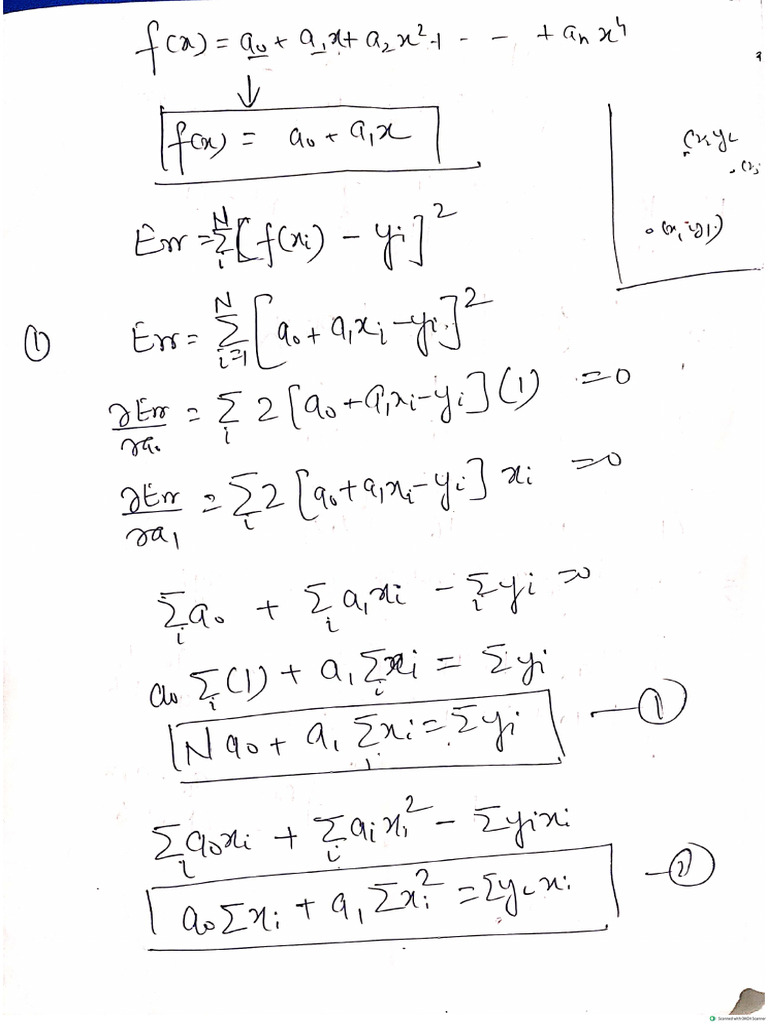 f(x) = a₀ + a₁x + a₂x² + - - + aₙxⁿ
↓
f(x) = a₀ + a₁x
(x₁, y₁)
Err = Σᵢᴺ [f(xᵢ) - yᵢ]²
① Err = Σᵢ₌₁ᴺ [a₀ + a₁xᵢ - yᵢ]²
∂Err/∂a₀ = Σᵢ 2 [a₀ + a₁xᵢ - yᵢ] (1) = 0
∂Err/∂a₁ = Σᵢ 2 [a₀ + a₁xᵢ - yᵢ] xᵢ = 0
Σᵢ a₀ + Σᵢ a₁xᵢ - Σᵢ yᵢ = 0
a₀ Σᵢ (1) + a₁ Σᵢ xᵢ = Σ yᵢ
N a₀ + a₁ Σᵢ xᵢ = Σ yᵢ — ①
Σᵢ a₀xᵢ + Σᵢ a₁xᵢ² - Σ yᵢxᵢ
a₀ Σ xᵢ + a₁ Σ xᵢ² = Σ yᵢ xᵢ — ②
Scanned with OKEN Scanner